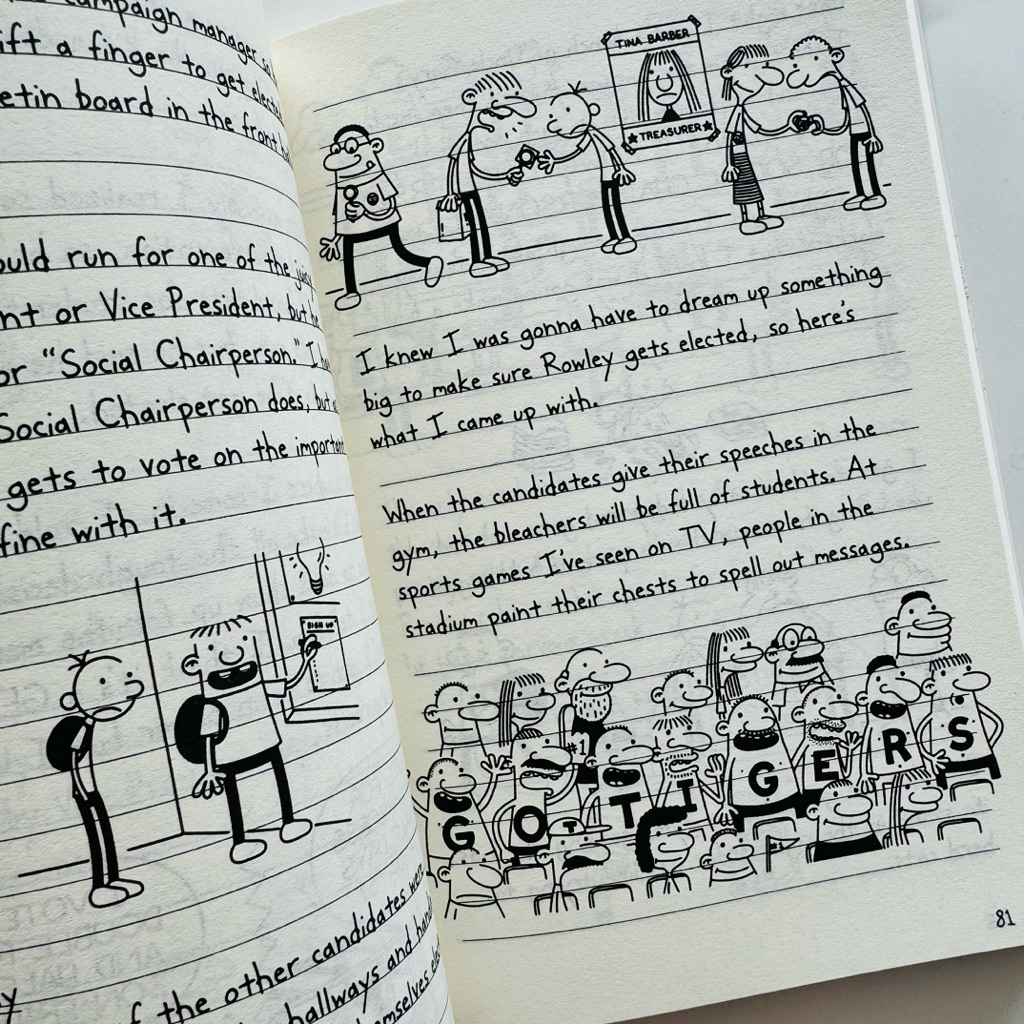 campaign manager so
ift a finger to get elec
etin board in the front
ould run for one of the
nt or Vice President, but
or “Social Chairperson.” I
Social Chairperson does, but
gets to vote on the important
fine with it.
SIGN UP
of the other candidates wer
hallways and
emselves
TINA BARBER
TREASURER
I knew I was gonna have to dream up something
big to make sure Rowley gets elected, so here's
what I came up with.
When the candidates give their speeches in the
gym, the bleachers will be full of students. At
sports games I've seen on TV, people in the
stadium paint their chests to spell out messages.
#1
GO TIGERS
T
#1
81